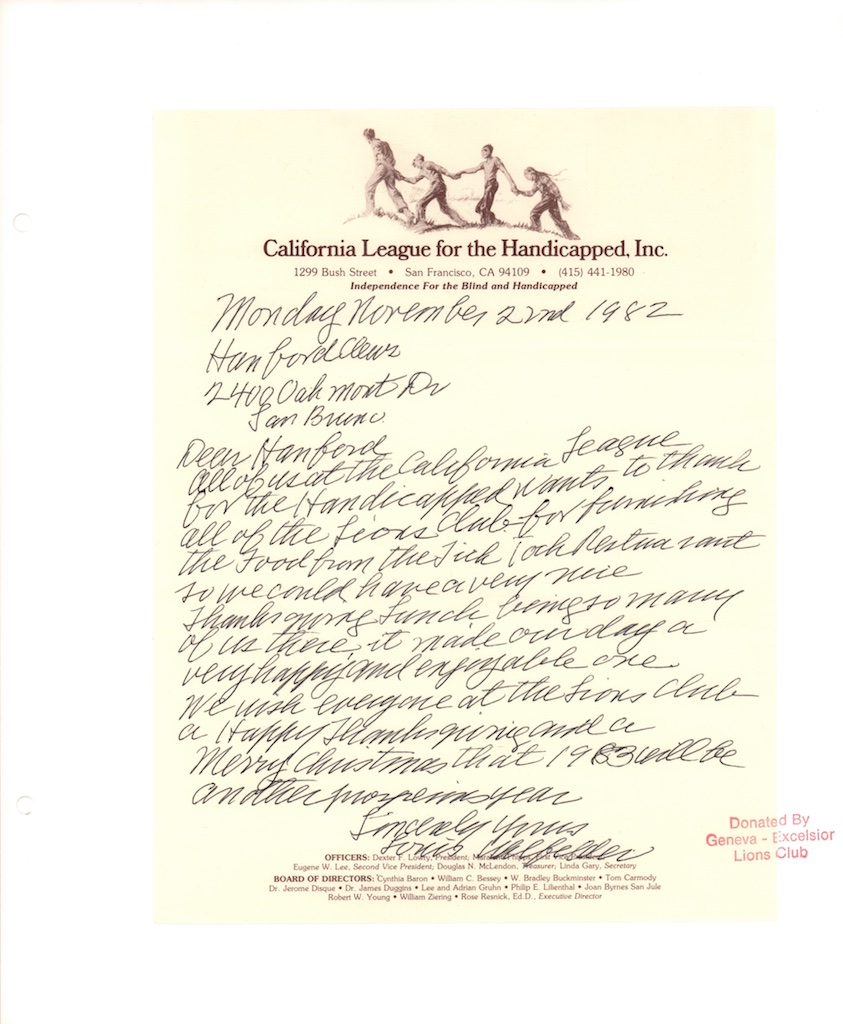 California League for the Handicapped, Inc.
1299 Bush Street • San Francisco, CA 94109 • (415) 441-1980
Independence For the Blind and Handicapped
Monday November 22nd 1982
Hanford Clews
2400 Oakmont Dr
San Bruno.
Dear Hanford
All of us at the California League
for the Handicapped wants to thank
all of the Lions Club for furnishing
the Food from the Tick Tock Restuarant
so we could have a very nice
Thanksgiving Lunch being so many
of us there, it made our day a
very happy and enjoyable one.
We wish everyone at the Lions Club
a Happy Thanksgiving and a
Merry Christmas that 1983 will be
another year
Sincerely Yours
Louis
OFFICERS: Dexter F. Lowry, President;
Eugene W. Lee, Second Vice President; Douglas N. McLendon, Treasurer; Linda Gary, Secretary
BOARD OF DIRECTORS: Cynthia Baron • William C. Bessey • W. Bradley Buckminster • Tom Carmody
Dr. Jerome Disque • Dr. James Duggins • Lee and Adrian Gruhn • Philip E. Lilienthal • Joan Byrnes San Jule
Robert W. Young • William Ziering • Rose Resnick, Ed.D., Executive Director
Donated By
Geneva - Excelsior
Lions Club